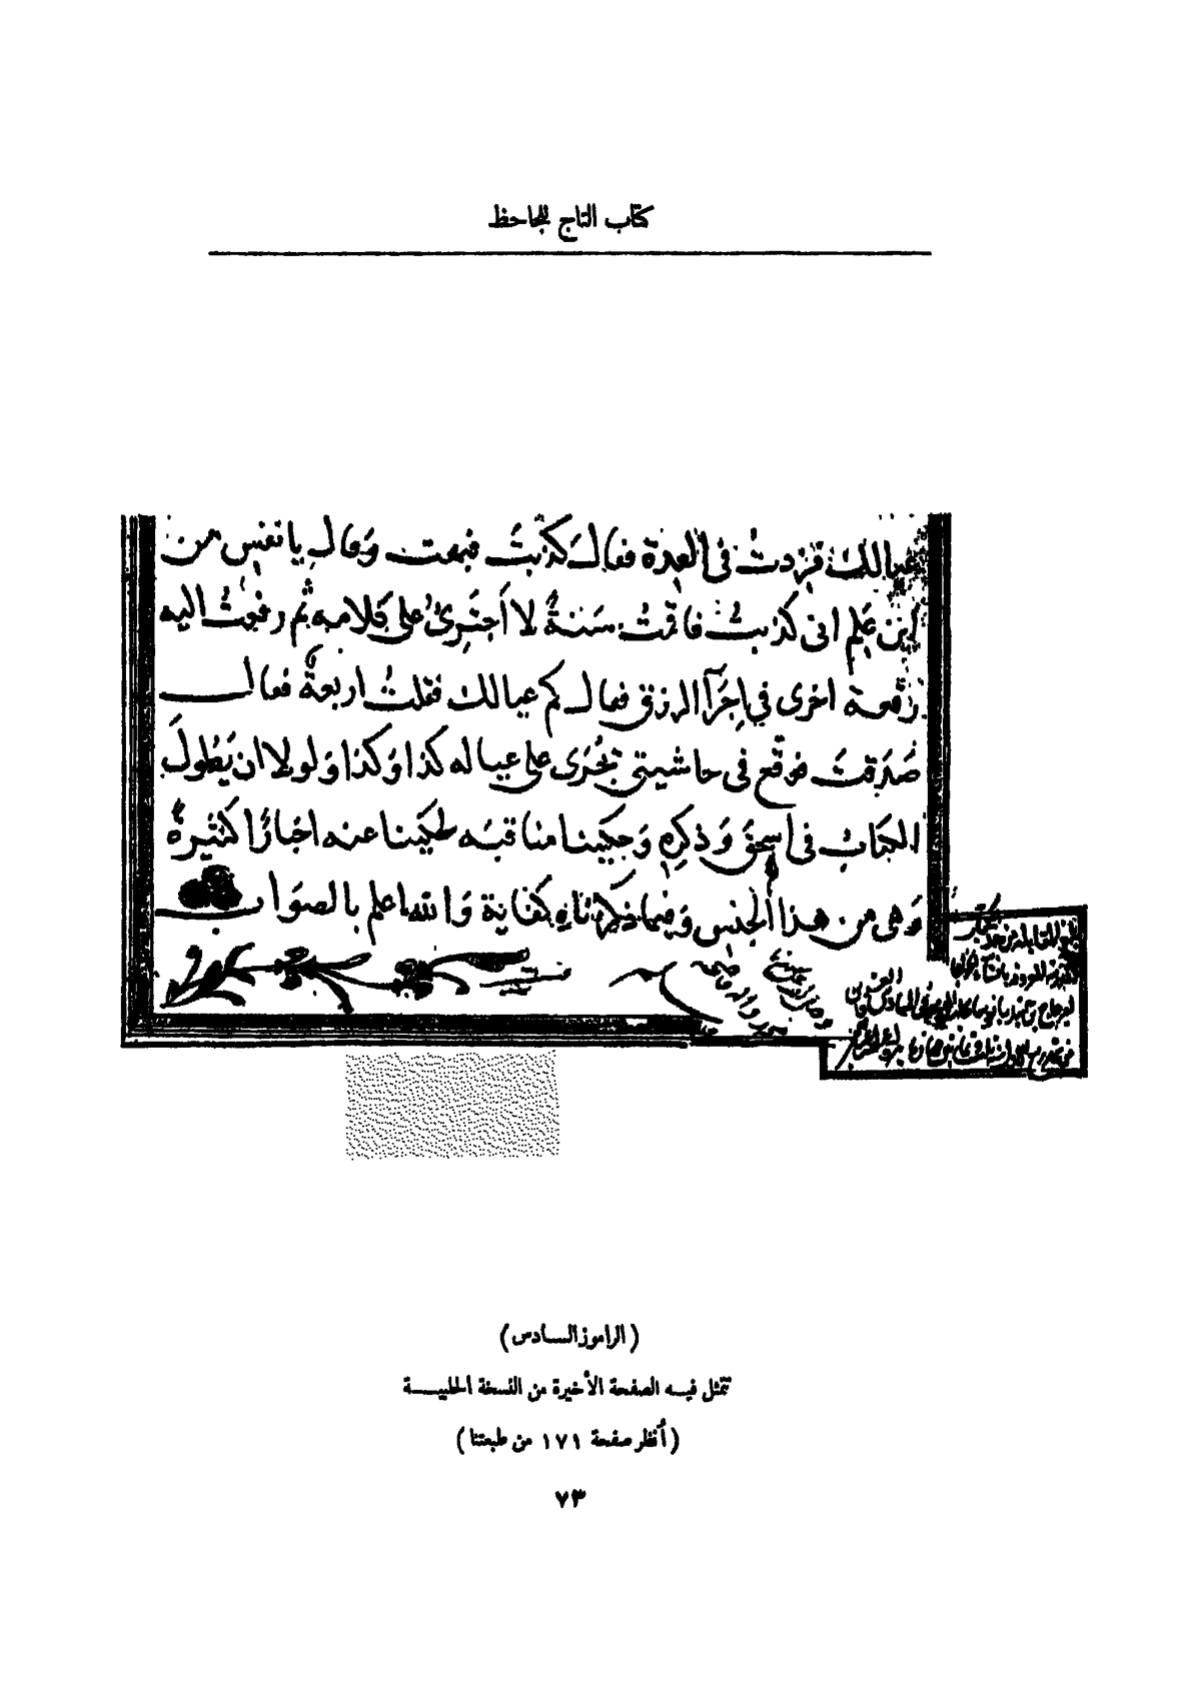 كتاب التاج للجاحظ
عيالك فزدتُ فى العدة فقال كذبتَ فبهت وقال يا نفس من
اين علم انى كذبتُ فاقمتُ سَنةً لا اَجترئُ على كلامه ثم رفعتُ اليه
رُقعة اخرى في اِجرَآ الرزق فقال كم عيالك فقلتُ اربعةٌ فقال
صَدَقتَ فوقّع فى حاشيتى تجُرَى على عياله كذا وَكذا وَلولا ان يَطولَ
الكتابُ فى اسحقَ وَذكرِه وَحكَينا مناقبَه لحكَينا عنه اخبارًا كثيرةً
وَهى من هذا الجنس وَفيما ذكرناه كفاية وَالله اعلم بالصوَاب
(الراموز السادس)
تتمثل فيه الصفحة الأخيرة من النسخة الحلبية
(أنظر صفحة ١٧١ من طبعتنا)
٧٣